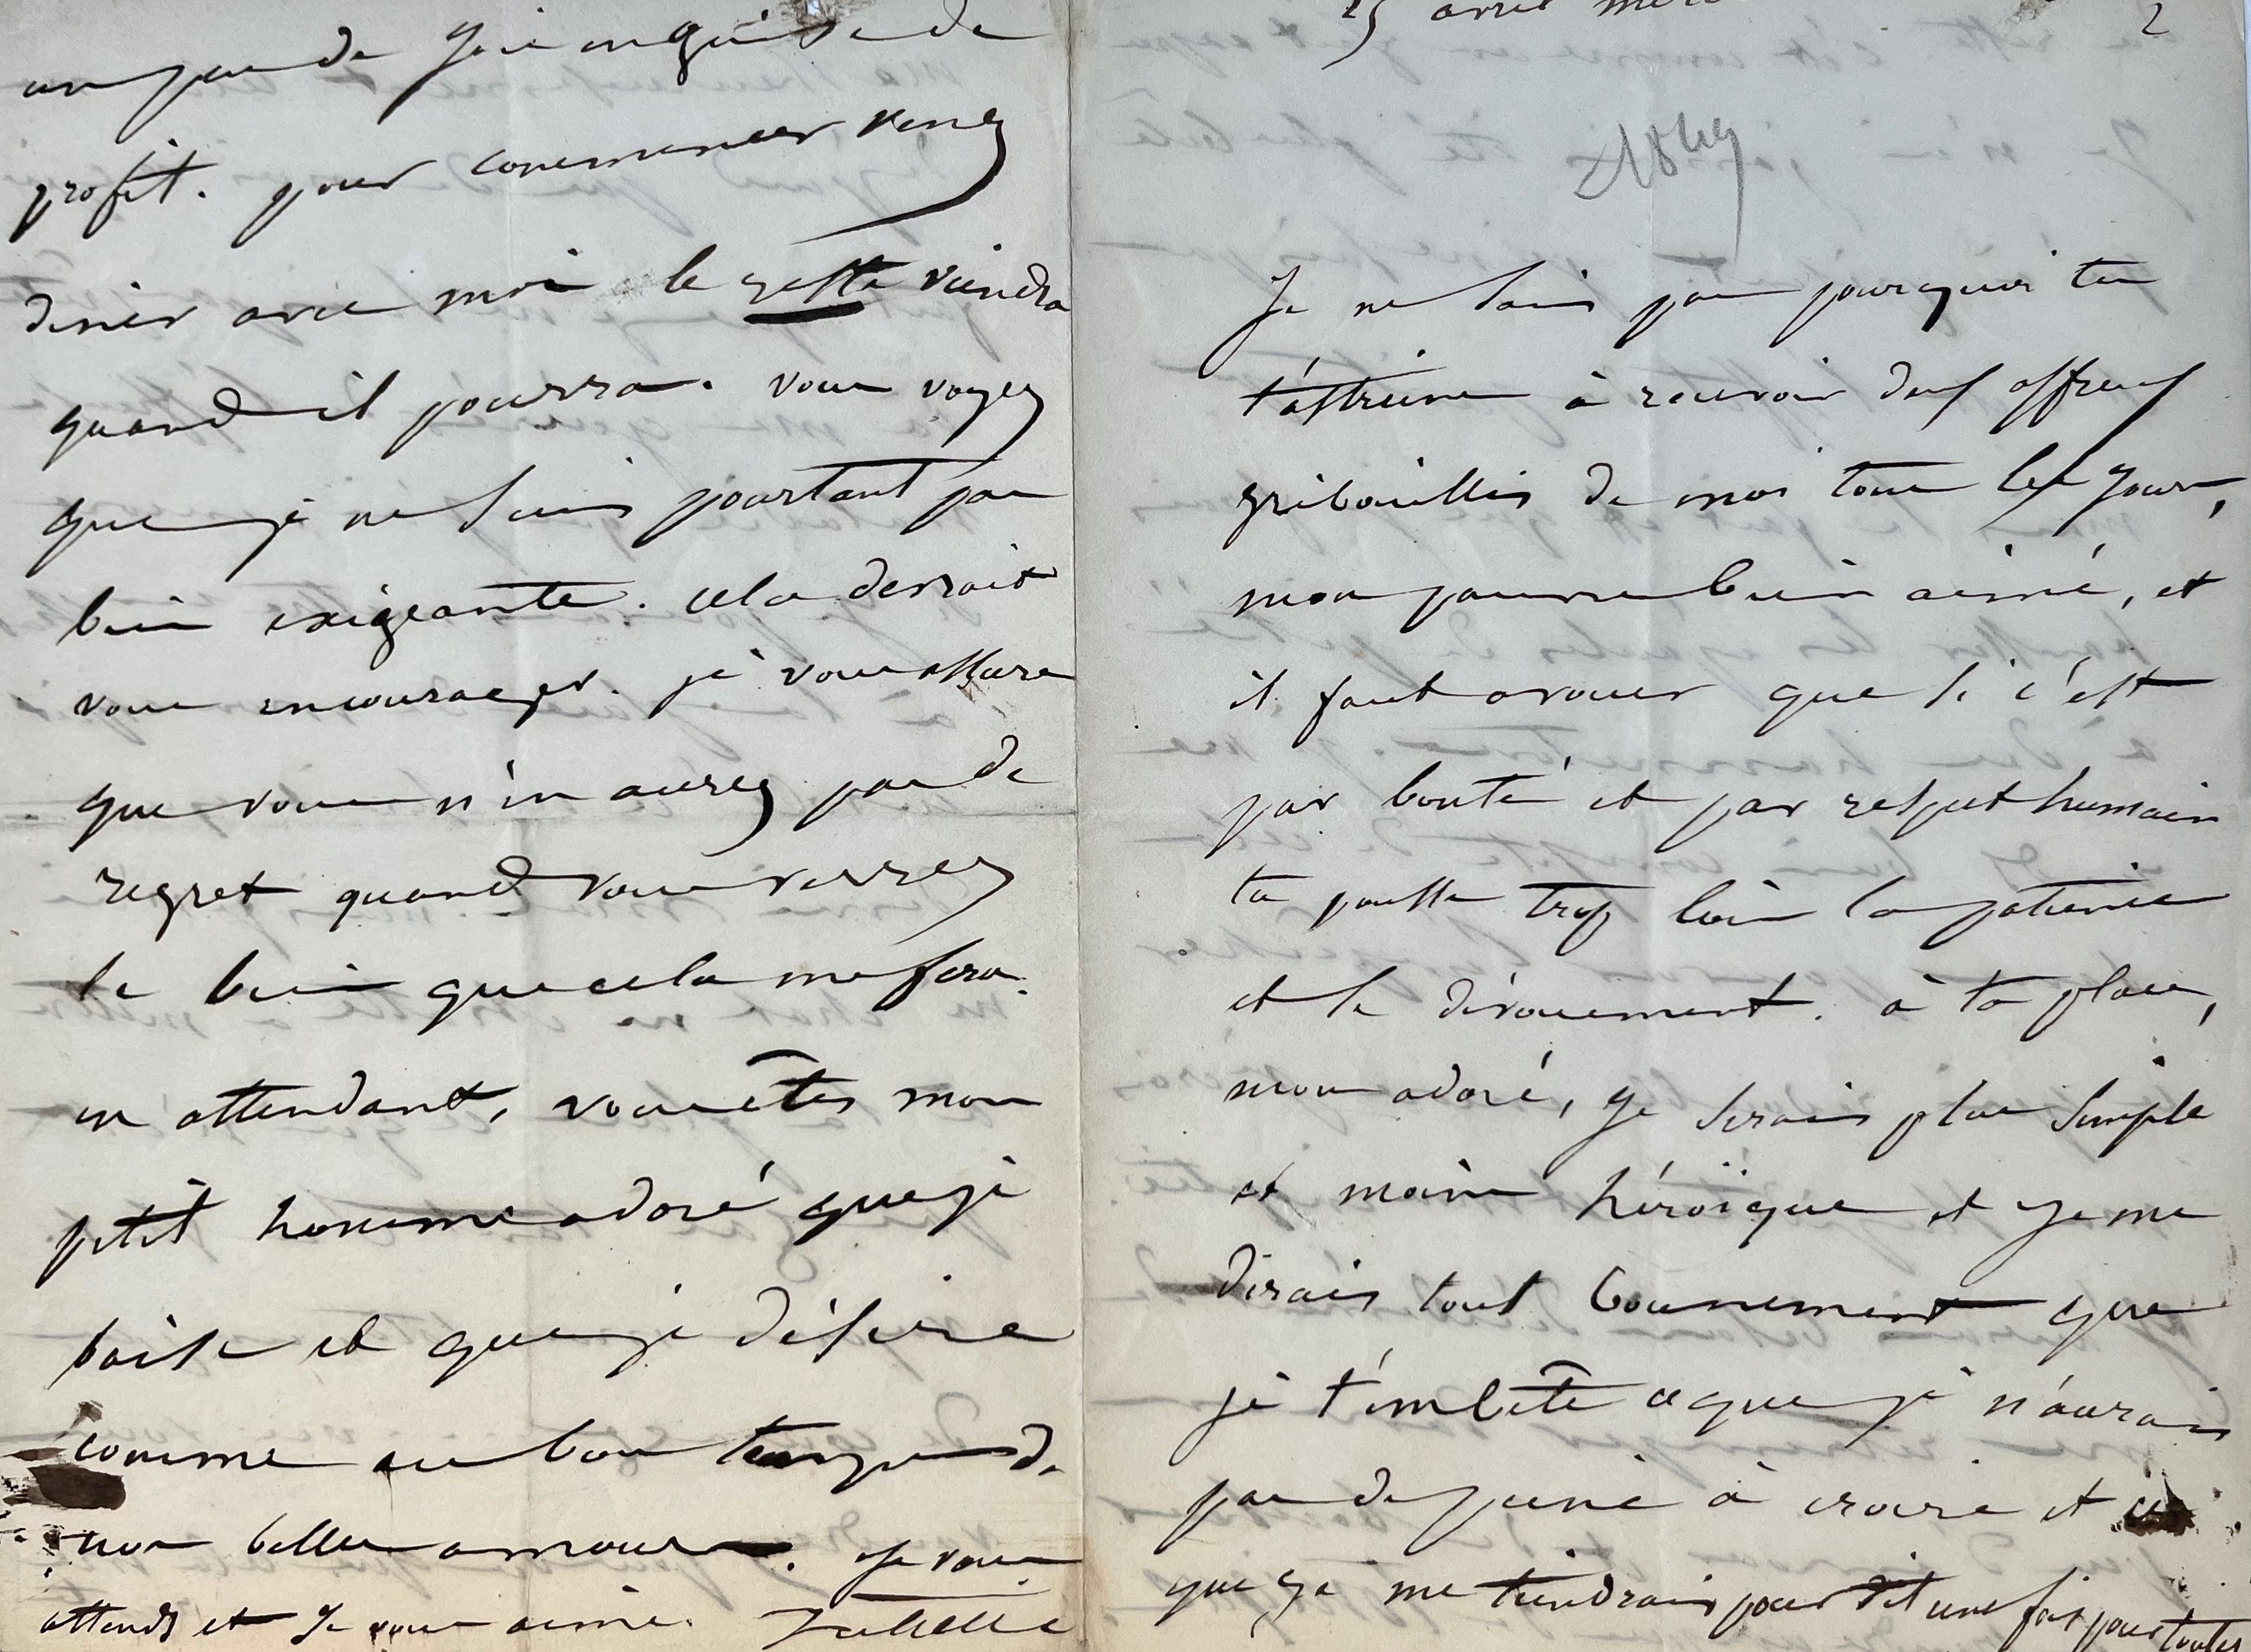 un peu de joie en guise de
profit. pour commencer venez
diner avec moi le reste viendra
quand il pourra. vous voyez
que je ne suis pourtant pas
bien exigeante. cela devrait
vous encourager. je vous assure
que vous n'en aurez pas de
regret quand vous verrez
le bien que cela me fera.
en attendant, vous êtes mon
petit homme adoré que je
baise et que je désire
comme au bon temps de
nos belles amours. Je vous
attends et je vous aime. Juliette
25 avril
2
1849
Je ne sais pas pourquoi tu
t'astreins à recevoir deux affreux
gribouillis de moi tous les jours,
mon pauvre bien aimé, et
il faut avouer que si c'est
par bonté et par respect humain
tu pousse trop loin la patience
et le dévouement. à ta place,
mon adoré, je serais plus simple
et moins héroïque et je me
dirais tout bonnement que
je t'embête ce que je n'aurais
pas de peine à croire et ce
que je me tiendrais pour dit une fois pour toutes